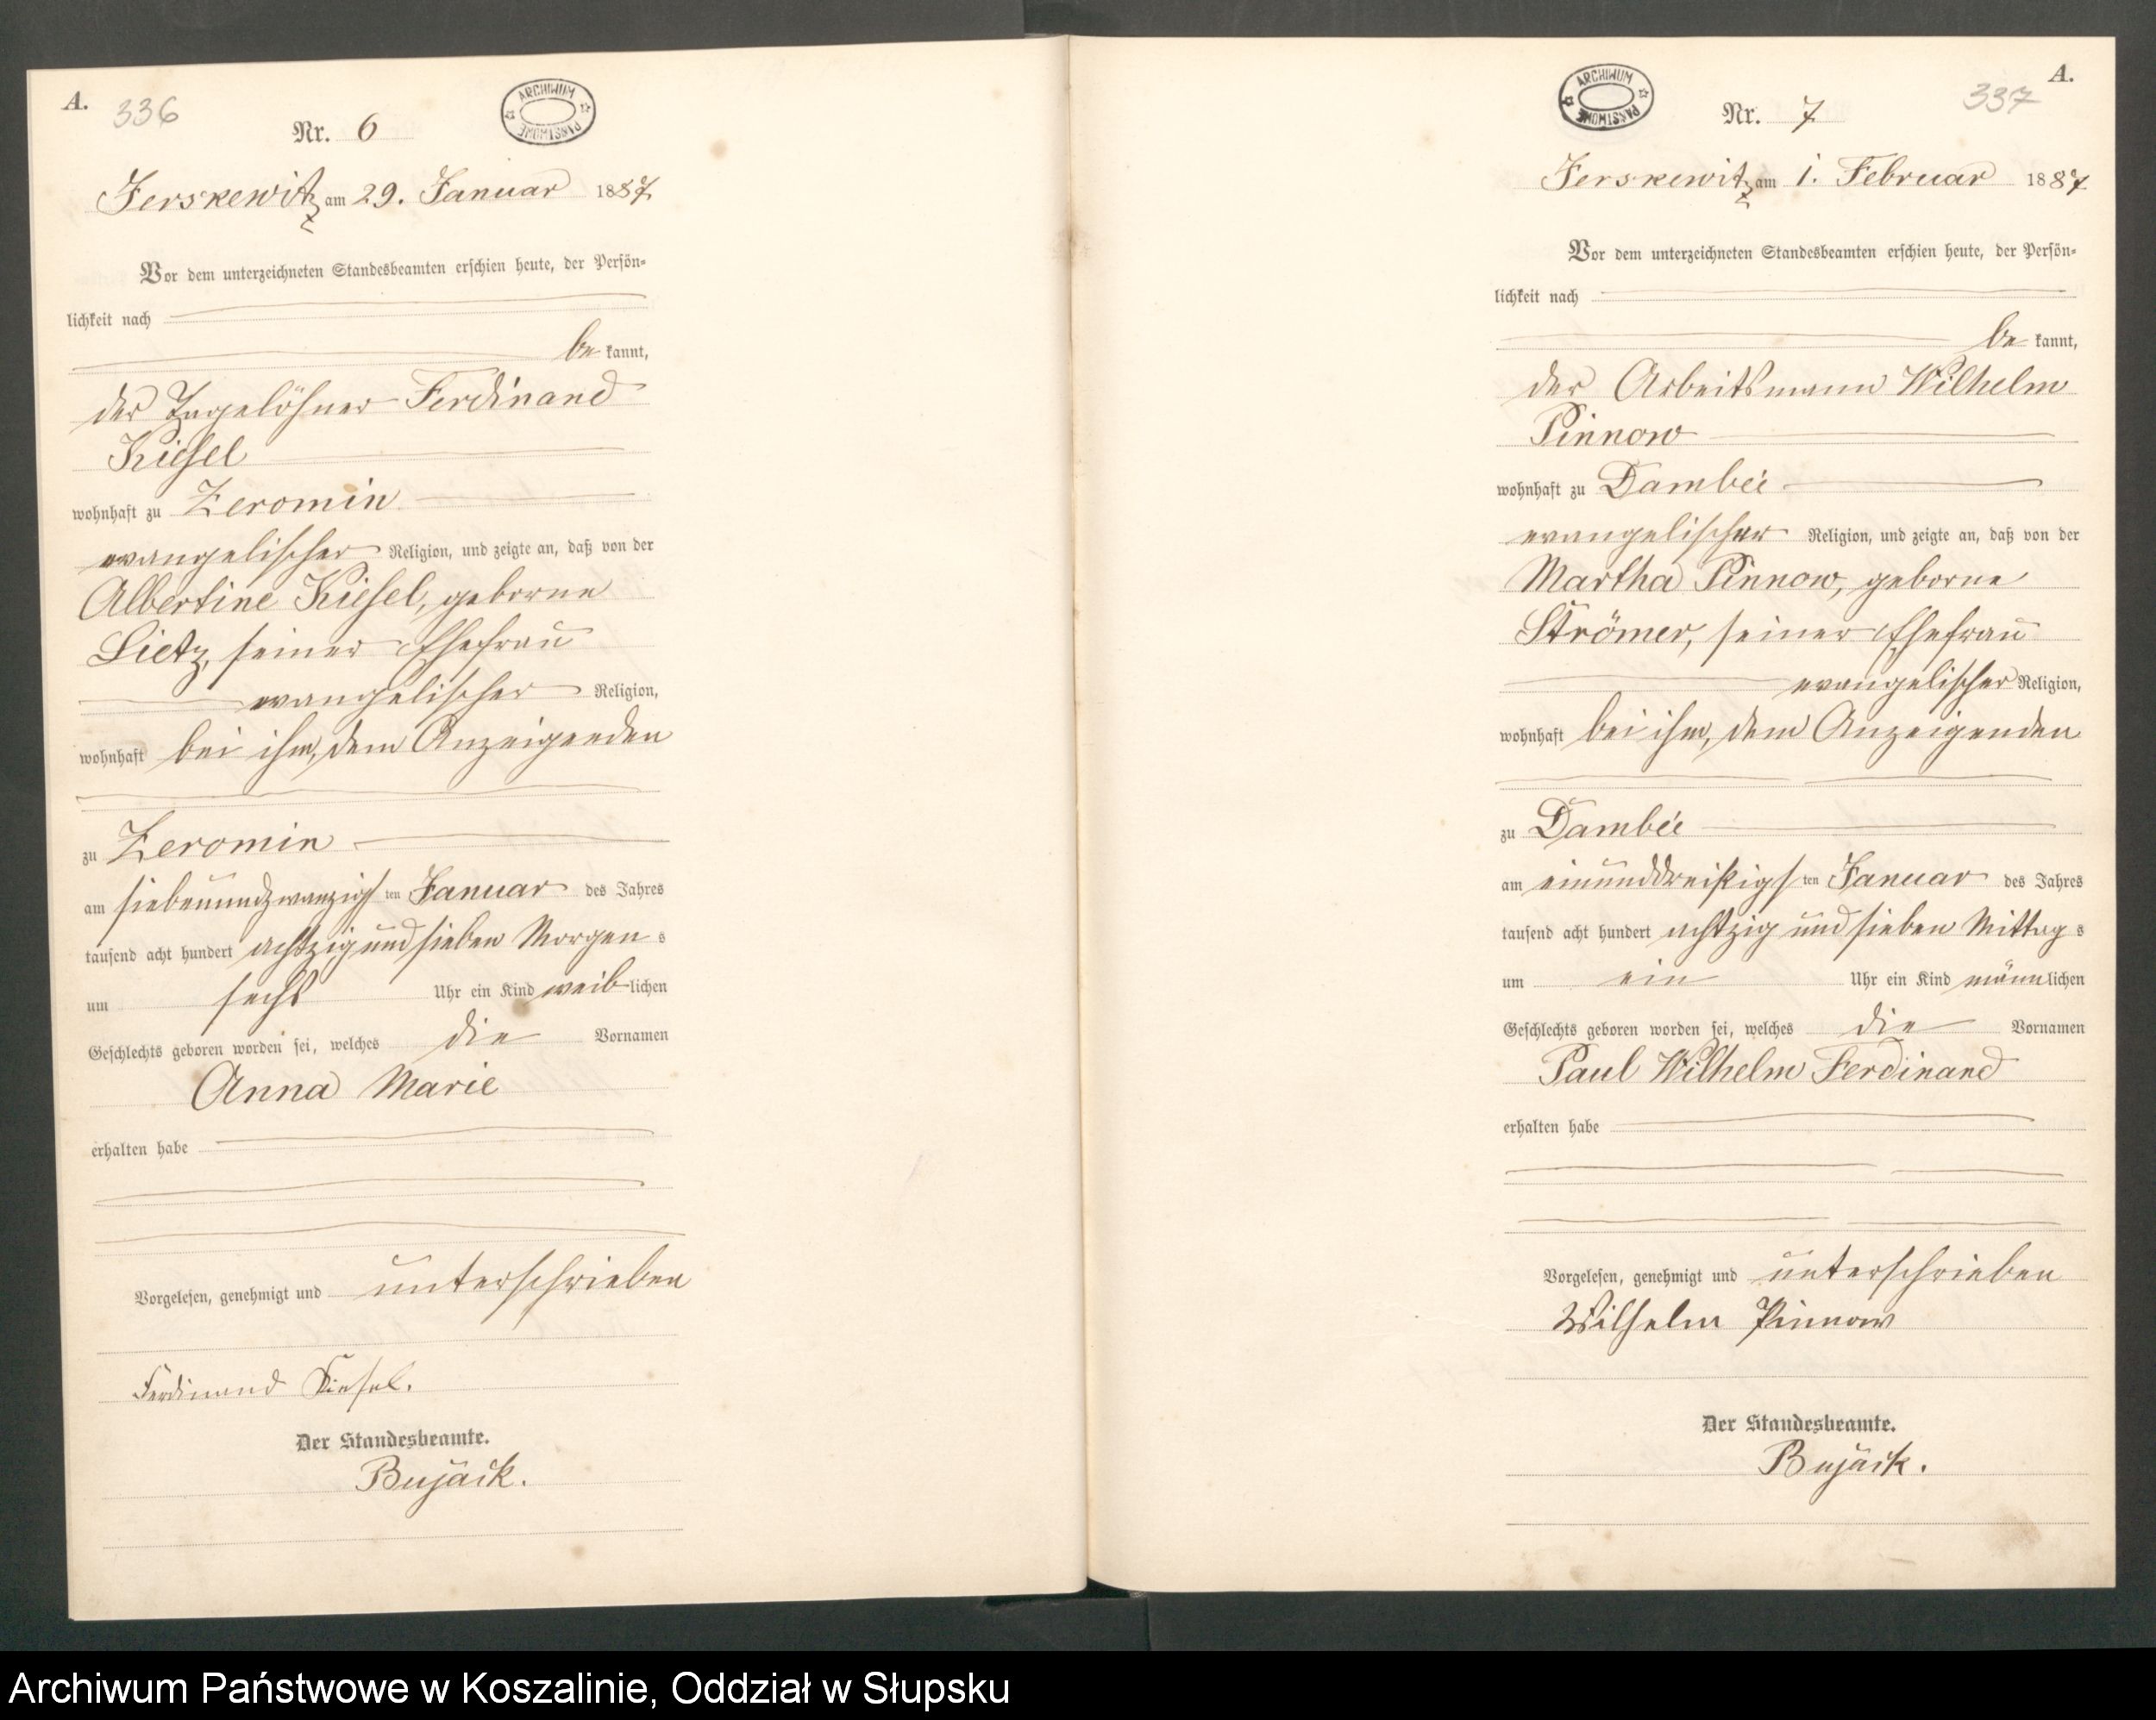 A.
336
Nr. 6
ARCHIWUM PAŃSTWOWE
Jerskewitz am 29. Januar 1887
Vor dem unterzeichneten Standesbeamten erschien heute, der Persön-
lichkeit nach
be kannt,
der Tagelöhner Ferdinand
Kiesel
wohnhaft zu Zeromin
evangelischer Religion, und zeigte an, daß von der
Albertine Kiesel, geborne
Lietz, seiner Ehefrau
evangelischer Religion,
wohnhaft bei ihm, dem Anzeigenden
zu Zeromin
am siebenundzwanzigs ten Januar des Jahres
tausend acht hundert achtzig und sieben Morgen s
um sechs Uhr ein Kind weib lichen
Geschlechts geboren worden sei, welches die Vornamen
Anna Marie
erhalten habe
Vorgelesen, genehmigt und unterschrieben
Ferdinand Kiesel.
Der Standesbeamte.
Bujack.
ARCHIWUM PAŃSTWOWE
A.
337
Nr. 7
Jerskewitz am 1. Februar 1887
Vor dem unterzeichneten Standesbeamten erschien heute, der Persön-
lichkeit nach
be kannt,
der Arbeitsmann Wilhelm
Pinnow
wohnhaft zu Dambée
evangelischer Religion, und zeigte an, daß von der
Martha Pinnow, geborne
Strömer, seiner Ehefrau
evangelischer Religion,
wohnhaft bei ihm, dem Anzeigenden
zu Dambée
am einunddreißigs ten Januar des Jahres
tausend acht hundert achtzig und sieben Mittag s
um ein Uhr ein Kind männ lichen
Geschlechts geboren worden sei, welches die Vornamen
Paul Wilhelm Ferdinand
erhalten habe
Vorgelesen, genehmigt und unterschrieben
Wilhelm Pinnow
Der Standesbeamte.
Bujack.
Archiwum Państwowe w Koszalinie, Oddział w Słupsku